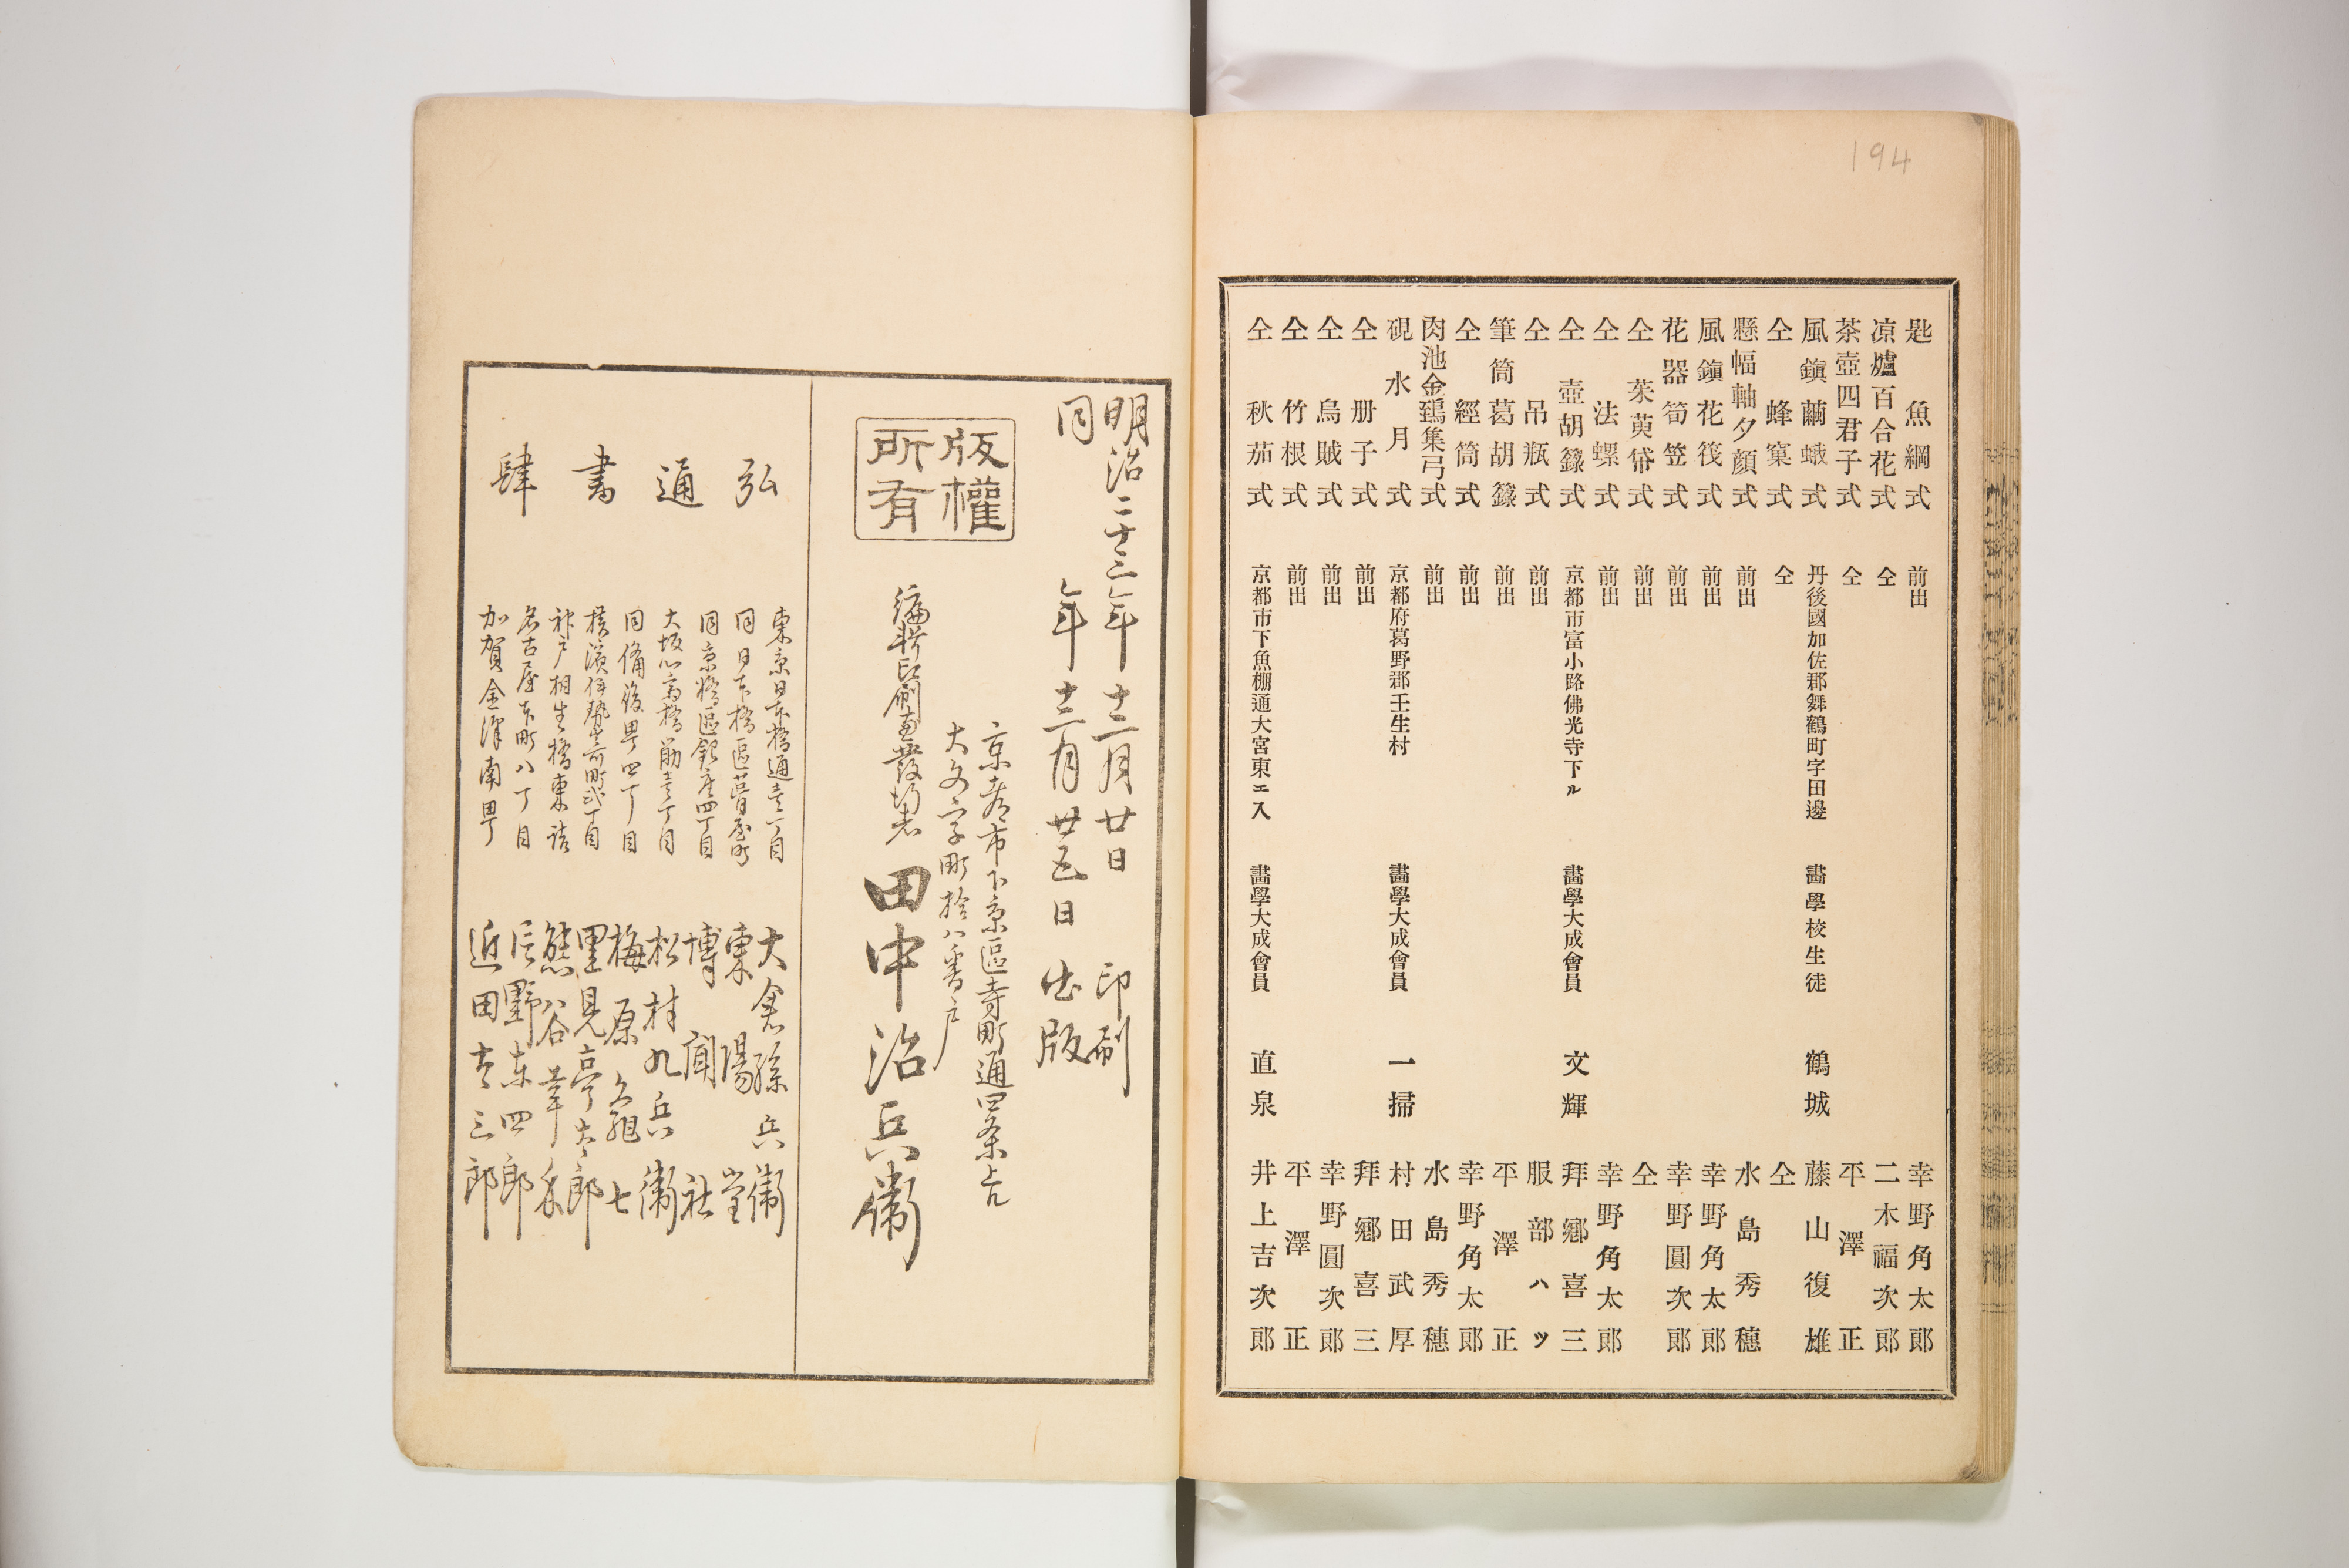 194
匙魚綱式 前出 幸野角太郎
凉爐百合花式 仝 二木福次郎
茶壺四君子式 仝 平澤正
風鎭繭蛾式 丹後國加佐郡舞鶴町字田邊 畵學校生徒 鶴城 藤山復雄
仝蜂窠式 仝 仝
懸幅軸夕顔式 前出 水島秀穗
風鎭花筏式 前出 幸野角太郎
花器筍笠式 前出 幸野圓次郎
仝茱萸帒式 前出 仝
仝法螺式 前出 幸野角太郎
仝壺胡籙式 京都市富小路佛光寺下ル 畵學大成會員 文輝 拜郷喜三
仝吊瓶式 前出 服部ハツ
筆筒葛胡籙 前出 平澤正
仝經筒式 前出 幸野角太郎
肉池金鵄集弓式 前出 水島秀穗
硯水月式 京都府葛野郡壬生村 畵學大成會員 一掃 村田武厚
仝册子式 前出 拜郷喜三
仝烏賊式 前出 幸野圓次郎
仝竹根式 前出 平澤正
仝秋茄式 京都市下魚棚通大宮東エ入 畵學大成會員 直泉 井上吉次郎
明治二十三年十二月廿日印刷
同年十二月廿五日出版
版權所有
京都市下京區寺町通四条上ル
大文字町拾八番戸
編輯印刷兼發行者 田中治兵衞
弘通書肆
東京日本橋通壹丁目 大倉孫兵衞
同日本橋區葺屋町 東陽堂
同京橋區銀座四丁目 博聞社
大坂心斎橋筋壹丁目 松村九兵衞
同備後町四丁目 梅原亀七
横濱伊勢佐町弐丁目 里見亭太郎
神戸相生橋東詰 熊谷幸
名古屋本町八丁目 辰野東四郎
加賀金澤南町 近田太三郎